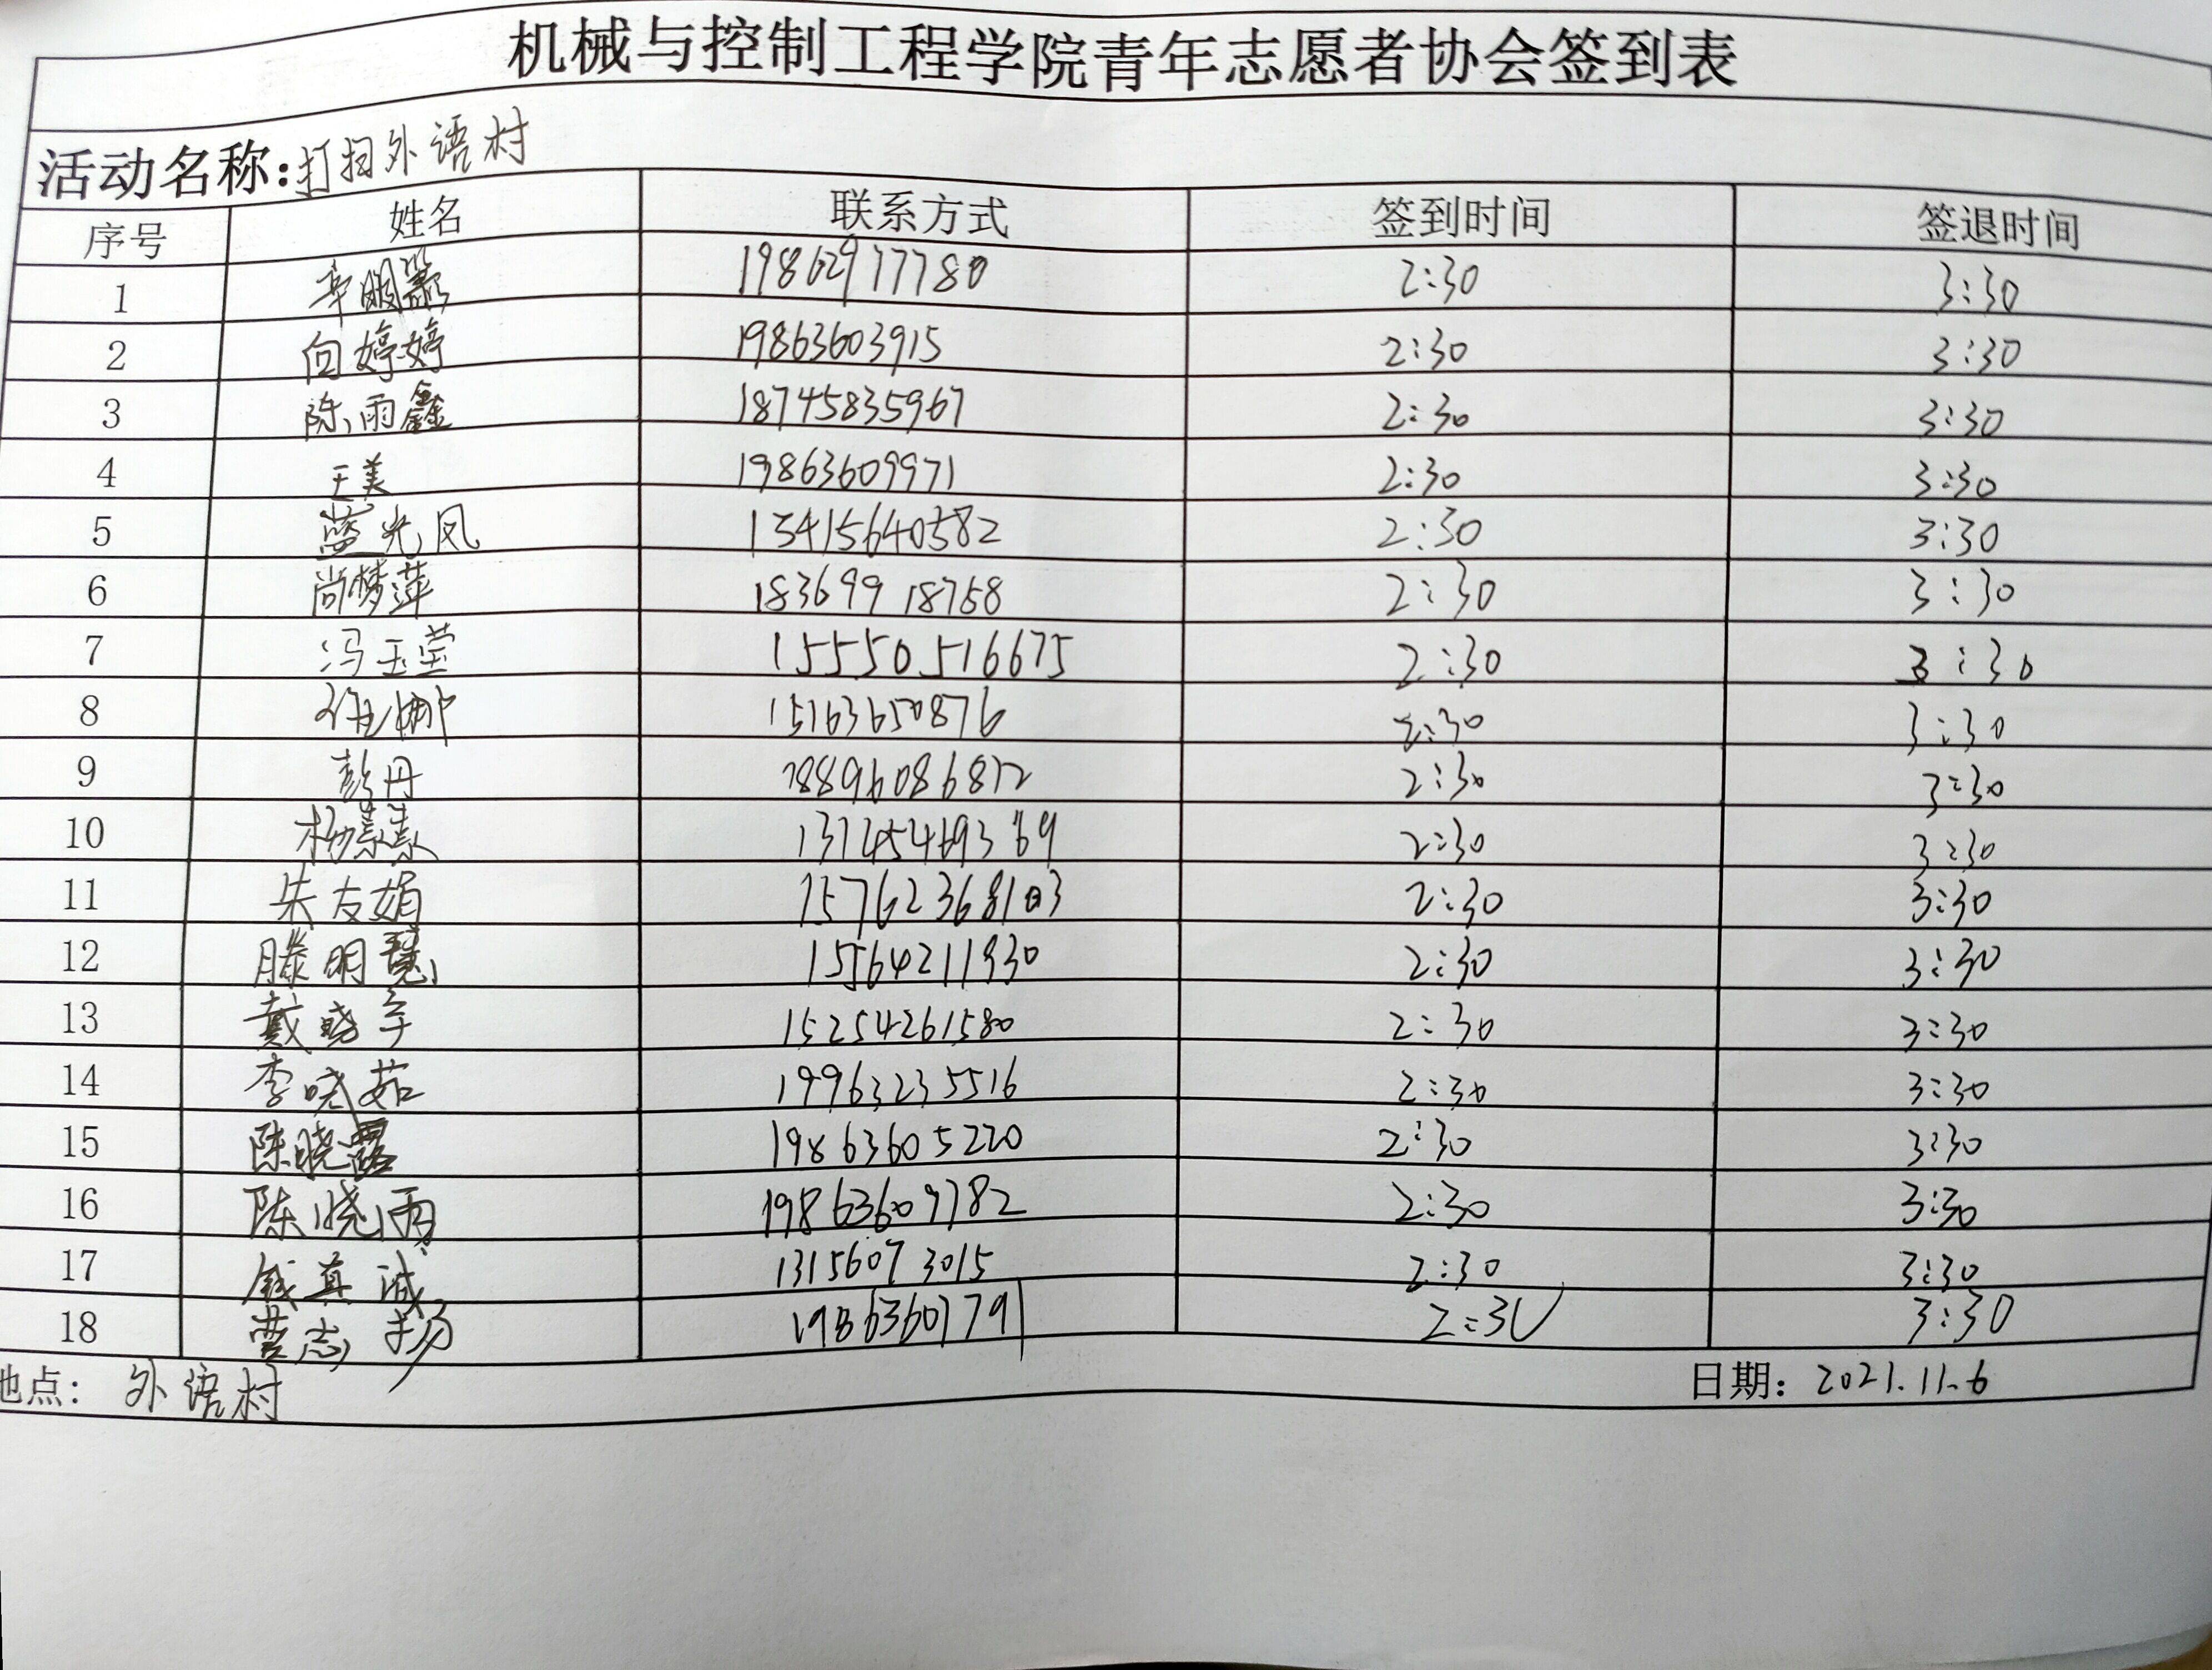 机械与控制工程学院青年志愿者协会签到表
活动名称:打扫外语村
序号 姓名 联系方式 签到时间 签退时间
1 辛明 19862977780 2:30 3:30
2 向婷婷 19863603915 2:30 3:30
3 陈雨鑫 18745835967 2:30 3:30
4 王美 19863609971 2:30 3:30
5 蓝光凤 13415640582 2:30 3:30
6 尚梦萍 18369918758 2:30 3:30
7 冯玉莹 15550516675 2:30 3:30
8 任娜 15163650876 2:30 3:30
9 彭丹 18896086812 2:30 3:30
10 杨素素 2:30 3:30
11 朱友娟 15762368103 2:30 3:30
12 滕明慧 15564211930 2:30 3:30
13 戴晓 15254261580 2:30 3:30
14 李晓茹 19963235516 2:30 3:30
15 陈晓露 19863605220 2:30 3:30
16 陈晓雨 19863609782 2:30 3:30
17 钱真诚 13156073015 2:30 3:30
18 曹志扬 19863607791 2:30 3:30
地点: 外语村 日期: 2021.11.6